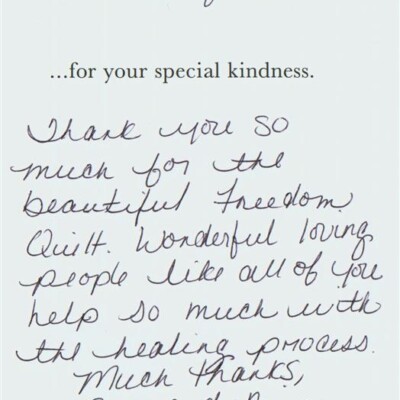 ...for your special kindness.
Thank you so
much for the
beautiful Freedom
Quilt. Wonderful loving
people like all of you
help so much with
the healing process.
Much Thanks,